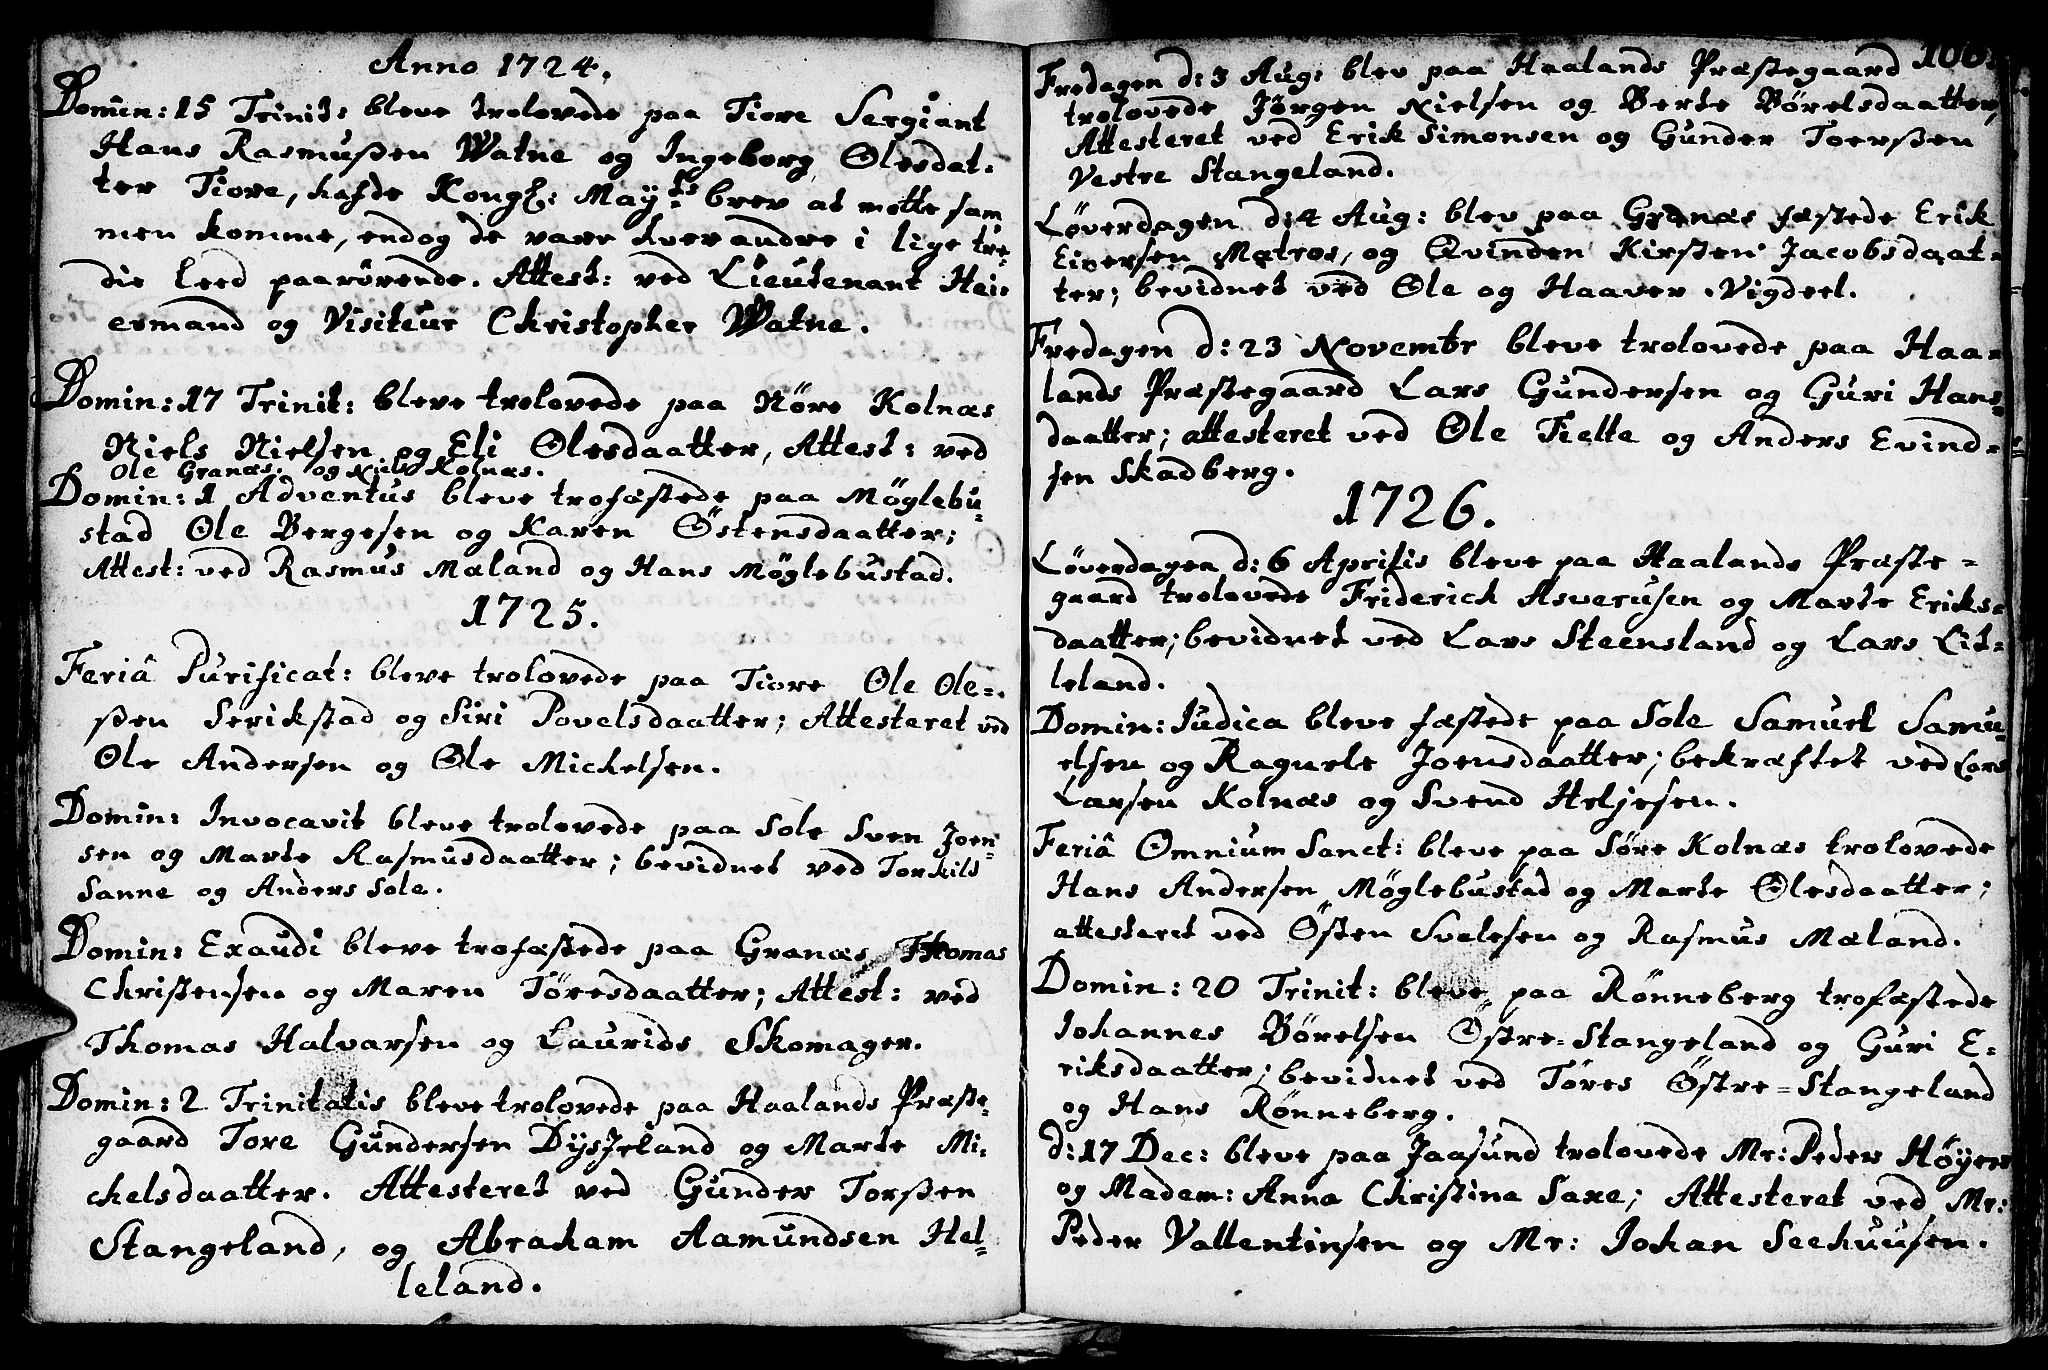 Anno 1724.
Domin: 15 Trinit: bleve trolovede paa Tiore Sergiant
Hans Rasmußen Watne og Ingeborg Olesdat-
ter Tiore, hafde Kongl: Mayts brev at motte sam
men komme, endog de vare hverandre i lige tre-
die leed paarörende. Attest: ved Lieutenant Hei-
ermand og Visiteur Christopher Watne.
Domin: 17 Trinit: bleve trolovede paa Nöre Kolnæs
Niels Nielsen og Eli Olesdaatter, Attest: ved
Ole Granæs. og Niels Kolnæs.
Domin: 1 Adventus bleve trofæstede paa Möglebu-
stad Ole Bergesen og Karen Östensdaatter;
Attest: ved Rasmus Mæland og Hans Möglebustad.
1725.
Feriâ Purificat: bleve trolovede paa Tiore Ole Ole-
ßen Serikstad og Siri Povelsdaatter; Attesteret ved
Ole Andersen og Ole Michelsen.
Domin: Invocavit bleve trolovede paa Sole Sven Joen-
sen og Marte Rasmusdaatter; bevidnet ved Torkild
Sanne og Anders Sole.
Domin: Exaudi bleve trofæstede paa Granæs Thomas
Christensen og Maren Töresdaatter; Attest: ved
Thomas Halvarsen og Laurids Skomager.
Domin: 2 Trinitatis bleve trolovede paa Haalands Præste-
gaard Tore Gundersen Dysjeland og Marte Mi-
chelsdaatter. Attesteret ved Gunder Torßen
Stangeland, og Abraham Aamundsen Hel-
leland.
106.
Fredagen d: 3 Aug: blev paa Haalands Præstegaard
trolovede Jörgen Nielsen og Berte Börelsdaatter,
Attesteret ved Erik Simonsen og Gunder Toerßen
Vestre Stangeland.
Löverdagen d: 4 Aug: blev paa Granæs fæstede Erik
Eiversen Matros, og Qvinden Kirsten Jacobsdaat-
ter; bevidnet ved Ole og Haaver Vigdeel.
Fredagen d: 23 Novembr bleve trolovede paa Haa-
lands Præstegaard Lars Gundersen og Guri Hans-
daatter; attesteret ved Ole Tielte og Anders Evind-
sen Skadberg.
1726.
Löverdagen d: 6 Aprilis bleve paa Haalands Præste-
gaard trolovede Friderich Asverusen og Marte Eriks-
daatter; bevidnet ved Lars Steensland og Lars Lit-
leland.
Domin: Judica bleve fæstede paa Sole Samuel Samu-
elsen og Ragnele Joensdaatter; bekræftet ved Lars
Larsen Kolnæs og Svend Heljesen.
Feriâ Omnium Sanct: bleve paa Söre Kolnæs trolovede
Hans Andersen Möglebustad og Marte Olesdaatter;
attesteret ved Östen Svalesen og Rasmus Mæland.
Domin: 20 Trinit: bleve paa Rönneberg trofæstede
Johannes Börelsen Östre-Stangeland og Guri E-
riksdaatter; bevidnet ved Töres Östre-Stangeland
og Hans Rönneberg.
d: 17 Dec: bleve paa Jaasund trolovede Mr: Peder Höyer
og Madam: Anna Christina Saxe; Attesteret ved Mr:
Peder Vallentinsen og Mr: Johan Seehuusen.